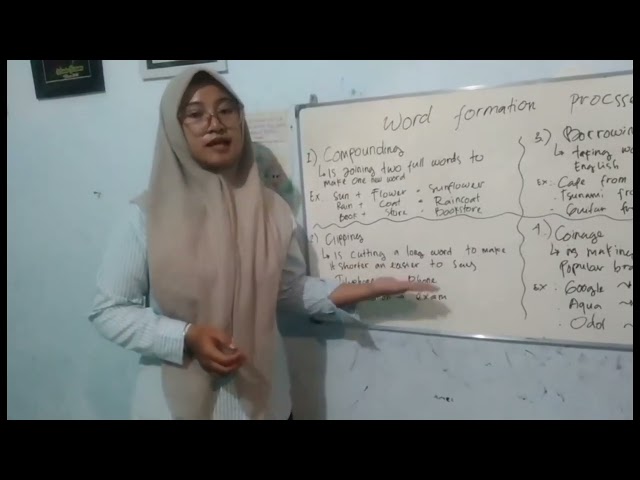 Word formation procsse
1.) Compounding
↳ Is joining two full words to
make one new word
Ex. Sun + Flower = sunflower
Rain + Coat = Raincoat
Book + Store = Bookstore
2.) Clipping
↳ is cutting a long word to make
it shorter an easier to say
Phone
exam
3.) Borrowin
↳ taking wo
English
Ex: Cafe from
Tsunami fro
Guitar fr
4.) Coinage
↳ makin
Popular bra
Ex: Google
Aqua
Odol